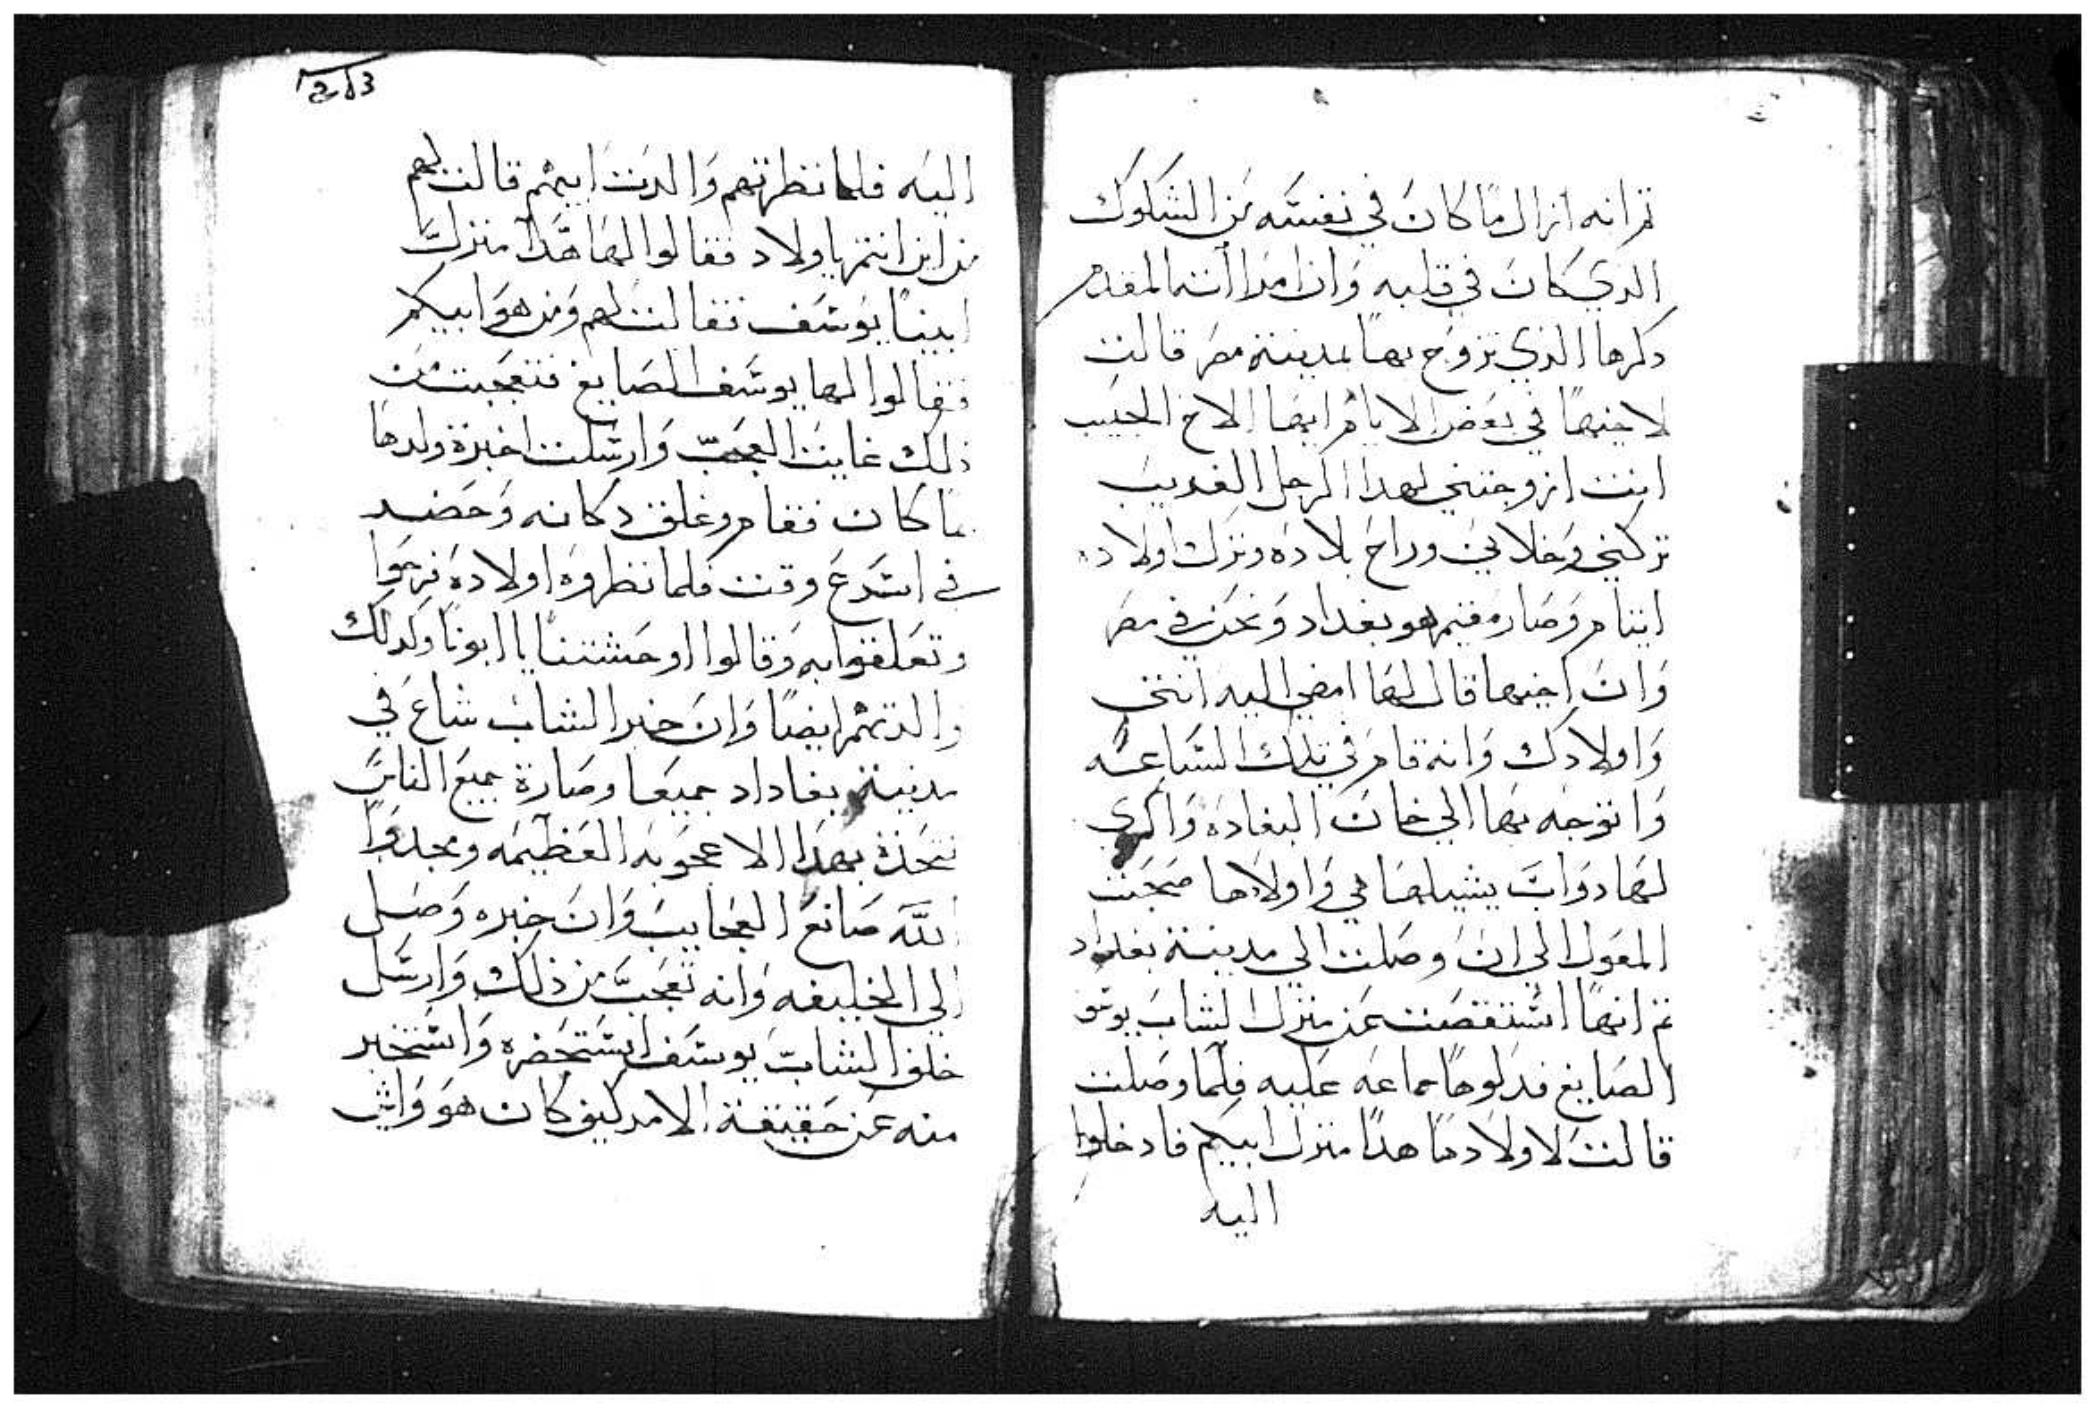 ثم انه ازال ما كان في نفسه من الشكوك
الذي كان في قلبه وان امراأته المقدم
دكرها الذي تزوج بها بمدينة مصر قالت
لاخيها في بعض الايام ايها الاخ الحبيب
انت ازوجتني لهدا الرجل الغريب
تركني وخلاني وراح بلاده وترك اولاده
ايتام وصار مقيم هو بغداد ونحن في مصر
وان اخيها قال لها امضي اليه انتي
واولادك وانه قام في تلك الساعه
واتوجه بها الي خان البغاده واكري
لها دواب يشيلها هي واولادها صحبت
المعول الي ان وصلت الي مدينة بغداد
ثم انها استقصت عن منزل الشاب يوسف
الصايغ فدلوها جماعه عليه فلما وصلت
قالت لاولادها هدا منزل ابيكم فادخلوا
اليه
اليه فلما نظرتهم والدت ابيهم قالت لهم
من اين انتم يا اولاد فقالوا لها هدا منزل
ابينا يوسف فقالت لهم ومن هو ابيكم
فقالوا لها يوسف الصايغ فتعجبت من
ذلك غايت العجب وارسلت اخبرة ولدها
بما كان فقام وغلق دكانه وحضر
في اسرع وقت فلما نظروه اولاده فرحوا
وتعلقوا به وقالوا اوحشتنا يا ابونا وكدلك
والدتهم ايضا وان خبر الشاب شاع في
مدينة بغاداد جميعا وصارة جميع الناس
تتحذة بهدا الاعجوبه العظيمه ويمجدوا
الله صانع العجايب وان خبره وصل
الي الخليفه وانه تعجب من ذلك وارسل
خلف الشاب يوسف استحضره واستخبر
منه عن حقيقة الامر كيف كان هو وايش